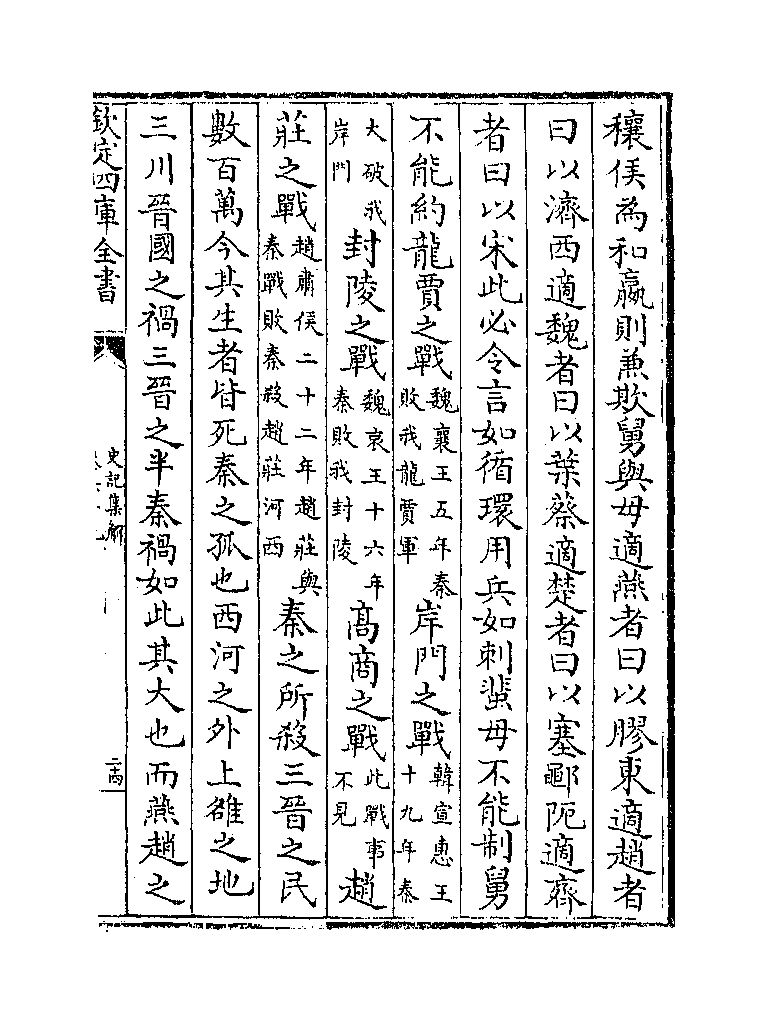 穰侯為和嬴則兼欺舅與母適燕者曰以膠東適趙者
曰以濟西適魏者曰以葉蔡適楚者曰以塞鄳阨適齊
者曰以宋此必令言如循環用兵如刺蜚母不能制舅
不能約龍賈之戰魏襄王五年秦敗我龍賈軍岸門之戰韓宣惠王十九年秦
大破我岸門封陵之戰魏哀王十六年秦敗我封陵高商之戰此戰事不見趙
莊之戰趙肅侯二十二年趙莊與秦戰敗秦殺趙莊河西秦之所殺三晉之民
數百萬今其生者皆死秦之孤也西河之外上雒之地
三川晉國之禍三晉之半秦禍如此其大也而燕趙之
欽定四庫全書
史記集解
二十四